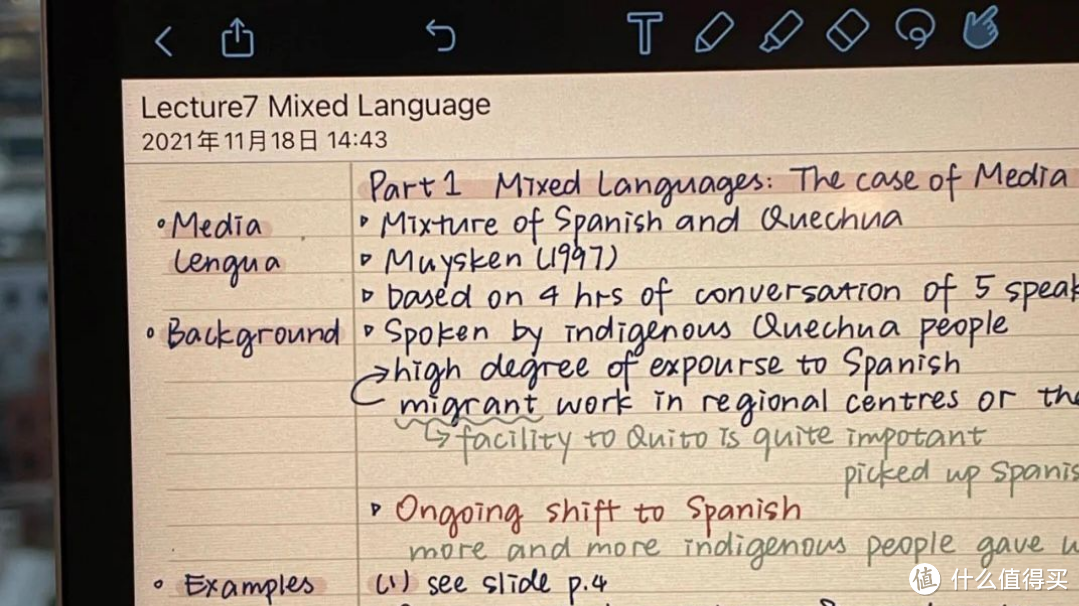 Lecture7 Mixed Language
2021年11月18日 14:43
Part 1 Mixed Languages: The case of Media
• Media
Lengua
▹ Mixture of Spanish and Quechua
▹ Muysken (1997)
▹ based on 4 hrs of conversation of 5 speak
• Background
▹ Spoken by indigenous Quechua people
→ high degree of expourse to Spanish
migrant work in regional centres or the
↳ facility to Quito is quite impotant
picked up Spanis
▹ Ongoing shift to Spanish
more and more indigenous people gave u
• Examples
(1) see slide p.4
值 什么值得买